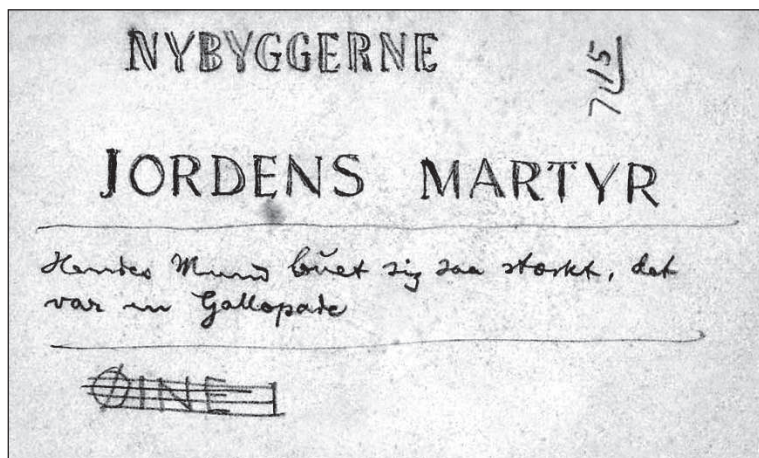 NYBYGGERNE
7/15
JORDENS MARTYR
Hendes Mund buet sig saa stærkt, det
var en Gallopade
ØINE